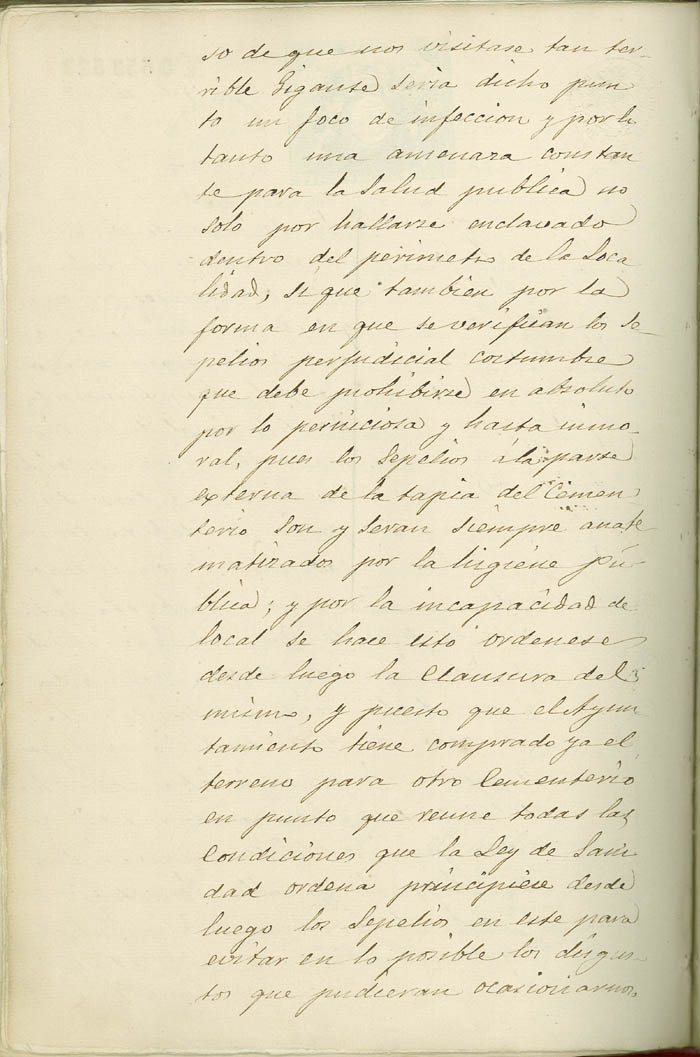 so de que nos visitase tan ter-
rible Gigante seria dicho pun
to un foco de infeccion y por lo
tanto una amenaza constan
te para la Salud publica no
solo por hallarse enclavado
dentro del perimetro de la Loca
lidad, si que tambien por la
forma en que se verifican los Se-
pelios perjudicial costumbre
que debe prohibirse en absoluto
por lo perniciosa y hasta inmo-
ral, pues los Sepelios á la parte
externa de la tapia del Cemen
terio son y seran siempre anate
matizados por la higiene pú-
blica; y por la incapacidad de
local se hace esto ordenese
desde luego la Clausura del
mismo, y puesto que el Ayun
tamiento tiene comprado ya el
terreno para otro Cementerio
en punto que reune todas las
Condiciones que la Ley de Sani
dad ordena principiese desde
luego los Sepelios en este para
evitar en lo posible los disgus-
tos que pudieran ocasionarnos,